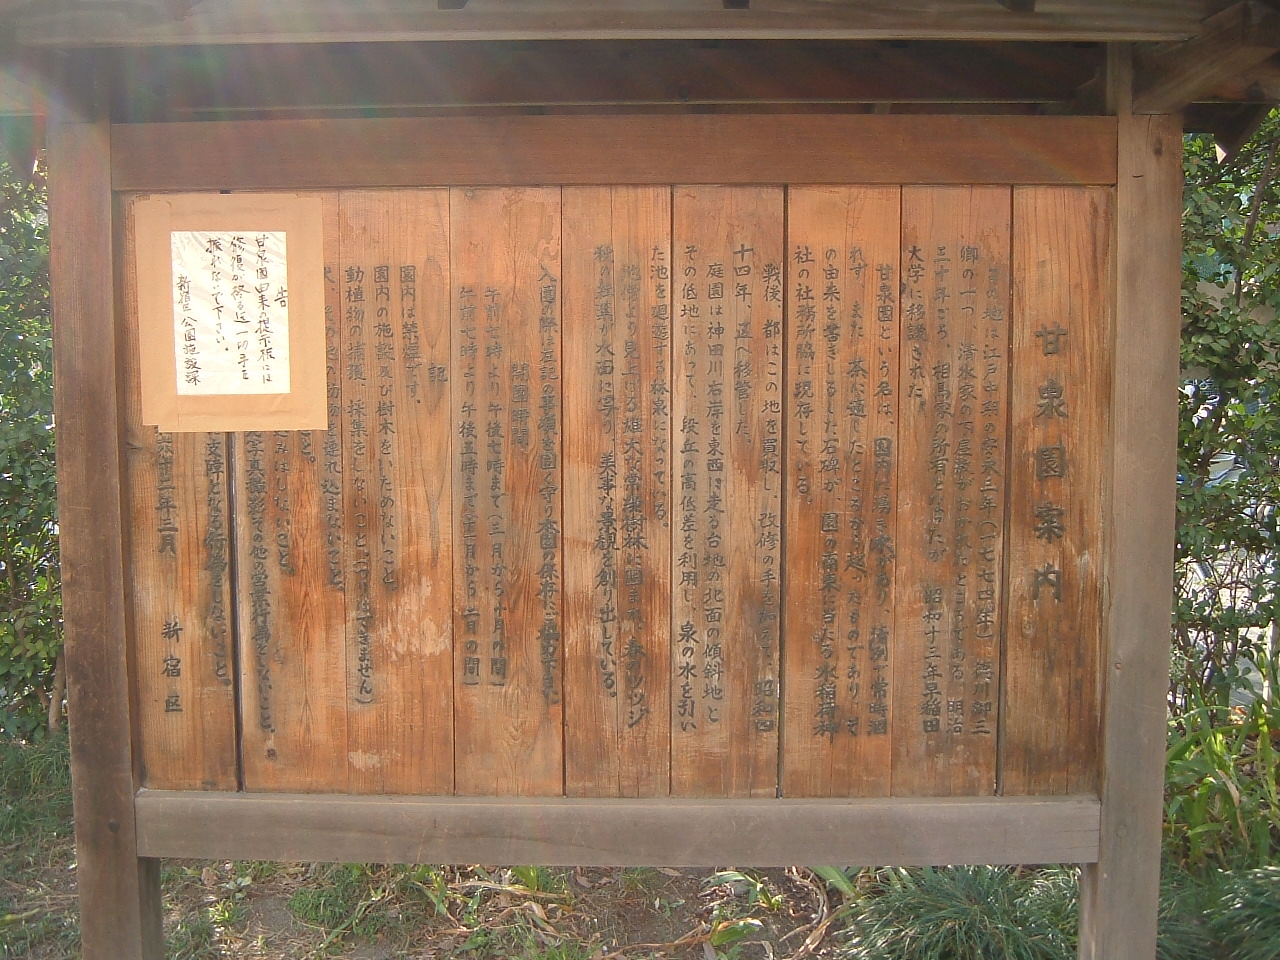 甘泉園案内
この地は、江戸中期の安永三年(一七七四年)、徳川御三
卿の一つ、清水家の下屋敷がおかれたところである。明治
三十年ごろ、相馬家の所有となったが、昭和十三年早稲田
大学に移譲された。
甘泉園という名は、園内に湧き水があり、清冽で常時涸
れず、また、茶に適したところから起ったものであり、そ
の由来を書きしるした石碑が、園の南東に当たる水稲荷神
社の社務所脇に現存している。
戦後、都はこの地を買収し、改修の手を加えて、昭和四
十四年、区へ移管した。
庭園は神田川右岸を東西に走る台地の北面の傾斜地と
その低地にあって、段丘の高低差を利用し、泉の水を引い
た池を廻遊する林泉になっている。
池畔より見上げる雄大な常緑樹林に囲まれ、春のツツジ
秋の紅葉が水面に写り、美事な景観を創り出している。
入園の際は左記の事項を固く守り本園の保存にご協力下さい
開園時間
午前七時より午後七時まで(三月から十月の間)
午前七時より午後五時まで(十一月から二月の間)
記
園内は禁煙です。
園内の施設及び樹木をいためないこと
動植物の捕獲、採集をしないこと(つりはできません)
犬、その他の動物を連れ込まないこと。
こと。
ごみはしないこと。
写真撮影その他の営業行為をしないこと。
支障となる行為をしないこと。
年三月 新宿区
告
甘泉園由来の提示板には
修復が終る迄一切手を
振れないで下さい。
新宿区公園施設課